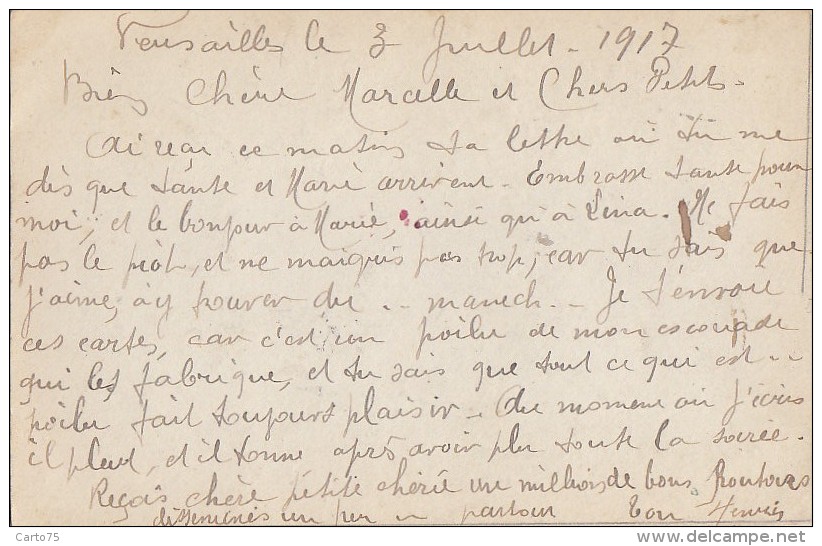 Versailles le 3 Juillet - 1917
Bien Chère Marcelle et Chers Petits -
Ai reçu ce matin ta lettre où tu me
dis que tante et Marie arrivent - Embrasse tante pour
moi, et le bonjour à Marie, ainsi qu'à Lina. Ne fais
pas le , et ne maigris pas trop, car tu sais que
j'aime, à y trouver du .. manech .. Je t'envoie
ces cartes, car c'est un poilu de mon escouade
qui les fabrique, et tu sais que tout ce qui est ..
poilu fait toujours plaisir - Au moment où j'écris
il pleut, et il tonne après avoir plu toute la soirée.
Reçois chère petite chérie un million de bons
disseminés un peu .. partout Ton Henri
Carto75